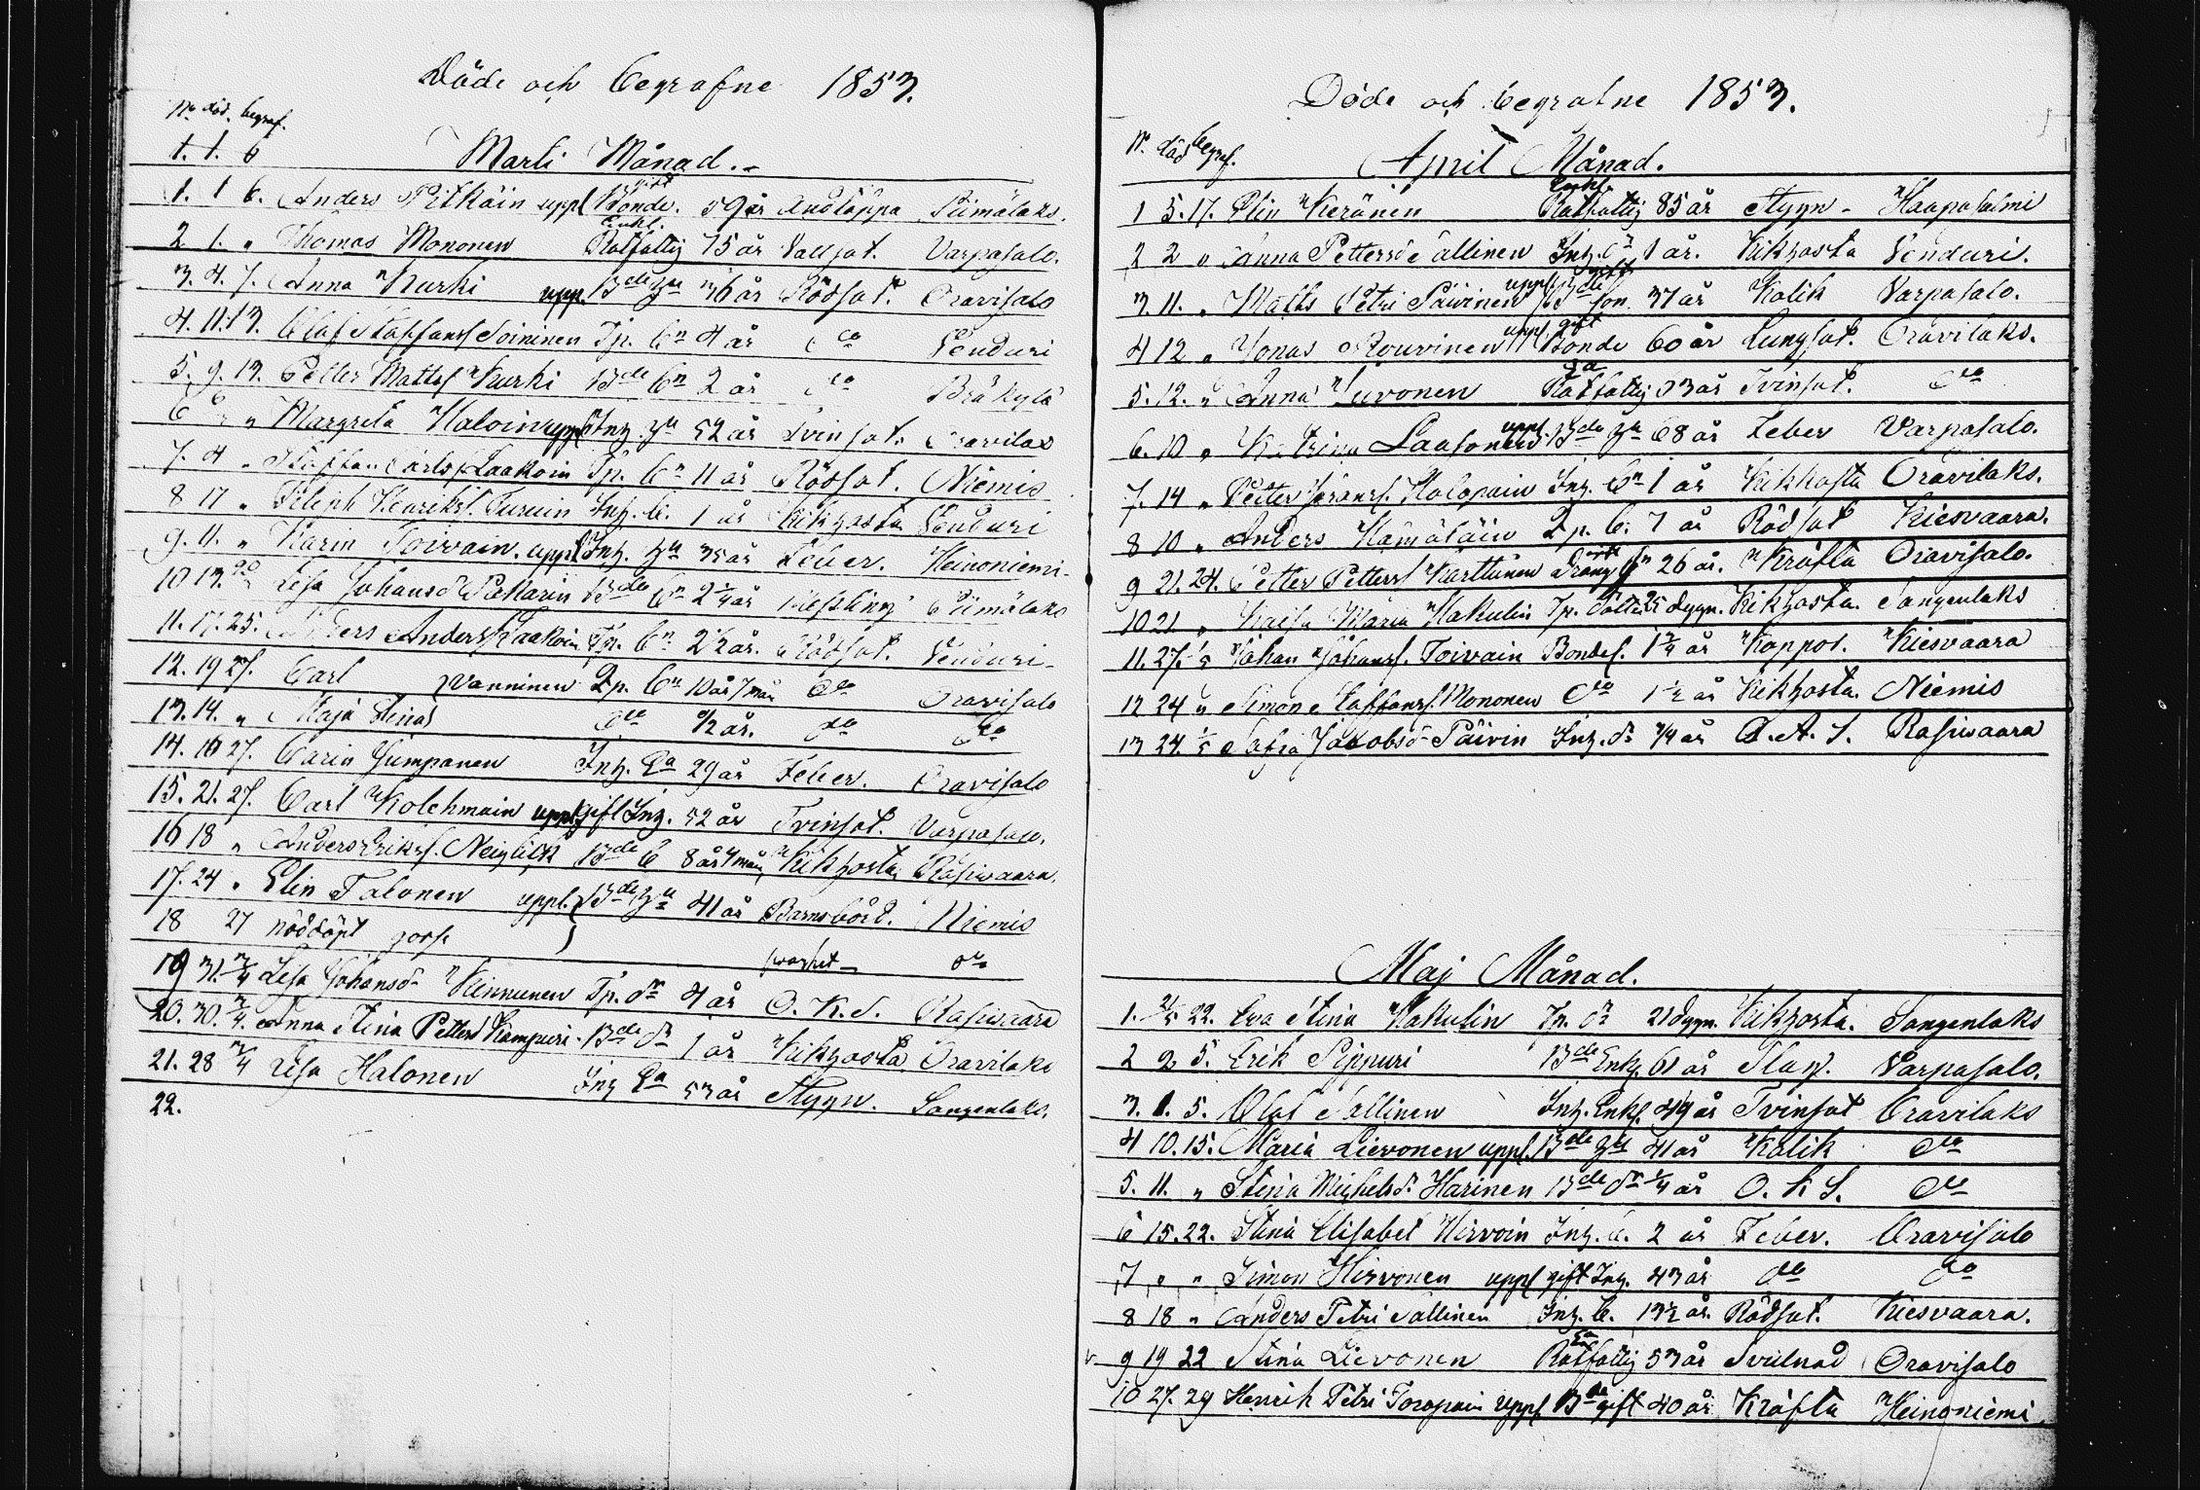 Döde och begrafne 1853.
No död. begraf.
1. 1. 6
Marti Månad.
1. 1 6. Anders Pitkäin uppl gift Bonde. 59 år Andtäppa Piimälaks.
2 1. " Thomas Mononen Enkl. Rotfattig 75 år Vattsot. Varpasalo.
3. 4. 7. Anna Kurki uppl. Bde Hu 36 år Rödsot. Oravisalo
4. 11. 13. Olof Staffans Soininen Tp. bn 4 år do Venduri
5. 9. 13. Petter Matts Kurki Bde bn 2 år do Bräkylä
6 " Margreta Haloin uppl Inh. Hu 52 år Tvinsot. Oravilax
7. 4 " Staffan Carls Laakoin Tp. bn 11 år Rödsot. Niemis
8 17 " Henriks. Turuin Inh. b. 1 år Kikhosta Venduri
9. 11. " Karin Toivain. uppl Inh. Hu 35 år Feber. Heinoniemi
10 13. 20 Lisa Johansd Pekarin Bde bn 2 1/4 år Messling Piimälaks
11. 17. 25. Anders Laakoin Tp. bn 2 1/2 år. Rödsot. Venduri
12. 19 27. Carl Vanninen Tp. bn 10 år 7 mån do Oravisalo
13. 14. " Maja Stina do 1/2 år. do do
14. 16 27. Carin Gumpanen Inh. Ea 29 år Feber. Oravisalo
15. 21. 27. Carl Kolehmain uppl gift Inh. 52 år Tvinsot. Varpasalo.
16 18 " Anders Eriks. Neiglick Bde b 8 år 4 mån Kikhosta Rasiwaara.
17. 24 " Elin Talonen uppl. Bde Hu 41 år Barnsbörd. Niemis
18 27 nöddöpt gosse swaghet do
19 31. 3/4 Lisa Johansd. Kinnunen Tp. dr 4 år O. K. S. Rasiwaara
20. 30. 3/4. Anna Stina Petters Kampuri Bde dr 1 år Kikhosta Oravilaks
21. 28 3/4 Lisa Halonen Inh Ea 53 år Stygn. Sangenlaks.
22.
Döde och begrafne 1853.
No död begraf.
April Månad.
1 5. 17. Elin Keränen Enkl. Rotfattig 85 år Stygn Haapasalmi
2 2 " Anna Pettersd Sallinen Inh. dr 1 år. Kikhosta Venduri.
3. 11. " Matts Petri Päivinen uppl gift Bde son 37 år Kolik Varpasalo.
4 12 " Jonas Rouvinen uppl gift Bonde 60 år Lungsot. Oravilaks.
5. 12. " Anna Luvonen Ea Rotfattig 53 år Tvinsot. do
6. 10 " Katrina Laasonen uppl Bde Hu 68 år Feber Varpasalo.
7. 14 " Petter Görans. Holopain Inh. bn 1 år Kikhosta Oravilaks.
8 10 " Anders Hämäläin Tp. b. 7 år Rödsot Kiesvaara.
9 21. 24. Petter Petters Karttunen Dräng gift 26 år. Kräfta Oravisalo.
10 21 " Kaisa Maria Kakulin Tp. dotter 25 dygn. Kikhosta. Sangenlaks
11. 27. 1/5 Johan Johans. Toivain Bondes. 1 3/4 år Koppor. Kiesvaara
12 24 " Simon Staffans. Mononen do 1 1/2 år Kikhosta. Niemis
13 24. 1/5 Sofia Jakobsd Päivin Inh. dr 3/4 år O. K. S. Rasiwaara
Maj Månad.
1. 2/5 22. Eva Stina Kakulin Tp. dr 21 dygn. Kikhosta. Sangenlaks
2 2 5. Erik Sippuri Bde Enkl. 61 år Slag. Varpasalo.
3. 1. 5. Olof Sallinen Inh. Enkl. 49 år Tvinsot Oravilaks
4 10. 15. Maria Lievonen uppl. Bde Hu 41 år Kolik do
5. 11. " Stina Michelsd. Harinen Bde dr 1/4 år O. K S. do
6 15. 22. Stina Elisabet Hirvoin Inh. b. 2 år Feber. Oravisalo
7 " " Simon Hirvonen uppl gift Inh. 43 år do do
8 18 " Anders Petri Sallinen Inh. b. 13 1/2 år Rödsot. Kiesvaara.
9 19 22 Stina Lievonen Ea Rotfattig 53 år Svulnad Oravisalo
10 27. 29 Henrik Petri Toropain uppl Bde gift 40 år Kräfta Heinoniemi.